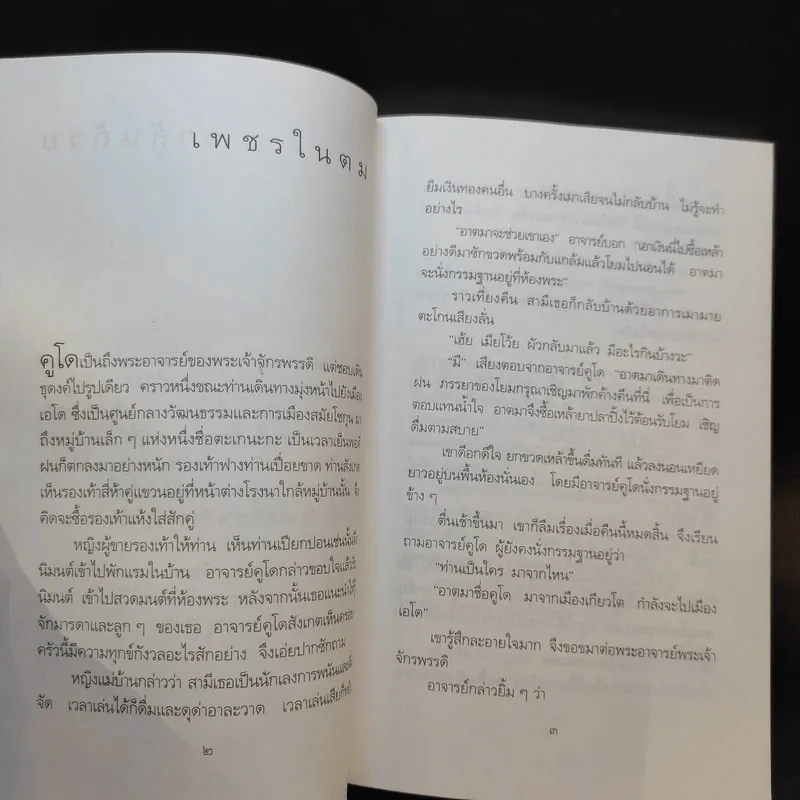 เพชรในตม
คูโดเป็นถึงพระอาจารย์ของพระเจ้าจักรพรรดิ แต่ชอบเดิน
ธุดงค์ไปรูปเดียว คราวหนึ่งขณะท่านเดินทางมุ่งหน้าไปยังเมือง
เอโด ซึ่งเป็นศูนย์กลางวัฒนธรรมและการเมืองสมัยโชกุน มา
ถึงหมู่บ้านเล็ก ๆ แห่งหนึ่งชื่อตะเกนะกะ เป็นเวลาเย็นพอดี
ฝนก็ตกลงมาอย่างหนัก รองเท้าฟางท่านเปื่อยขาด ท่านสังเกต
เห็นรองเท้าสี่ห้าคู่แขวนอยู่ที่หน้าต่างโรงนาใกล้หมู่บ้านนั้น จึ
คิดจะซื้อรองเท้าแห้งใส่สักคู่
หญิงผู้ขายรองเท้าให้ท่าน เห็นท่านเปียกปอนเช่นนั้นก็
นิมนต์เข้าไปพักแรมในบ้าน อาจารย์คูโดกล่าวขอบใจแล้วรับ
นิมนต์ เข้าไปสวดมนต์ที่ห้องพระ หลังจากนั้นเธอแนะนำให้
จักมารดาและลูก ๆ ของเธอ อาจารย์คูโดสังเกตเห็นครอบ
ครัวนี้มีความทุกข์กังวลอะไรสักอย่าง จึงเอ่ยปากซักถาม
หญิงแม่บ้านกล่าวว่า สามีเธอเป็นนักเลงการพนันและดื่ม
จัด เวลาเล่นได้ก็ดื่มและดุด่าอาละวาด เวลาเล่นเสียก็
๒
ยืมเงินทองคนอื่น บางครั้งเมาเสียจนไม่กลับบ้าน ไม่รู้จะทำ
อย่างไร
"อาตมาจะช่วยเขาเอง" อาจารย์บอก "เอาเงินนี้ไปซื้อเหล้า
อย่างดีมาซักขวดพร้อมกับแกล้มแล้วโยมไปนอนได้ อาตมา
จะนั่งกรรมฐานอยู่ที่ห้องพระ"
ราวเที่ยงคืน สามีเธอก็กลับบ้านด้วยอาการเมามาย
ตะโกนเสียงลั่น
"เฮ้ย เมียโว้ย ผัวกลับมาแล้ว มีอะไรกินบ้างวะ"
"มี" เสียงตอบจากอาจารย์คูโด "อาตมาเดินทางมาติด
ฝน ภรรยาของโยมกรุณาเชิญมาพักค้างคืนที่นี่ เพื่อเป็นการ
ตอบแทนน้ำใจ อาตมาจึงซื้อเหล้ายาปลาปิ้งไว้ต้อนรับโยม เชิญ
ดื่มตามสบาย"
เขาดีอกดีใจ ยกขวดเหล้าขึ้นดื่มทันที แล้วลงนอนเหยียด
ยาวอยู่บนพื้นห้องนั่นเอง โดยมีอาจารย์คูโดนั่งกรรมฐานอยู่
ข้าง ๆ
ตื่นเช้าขึ้นมา เขาก็ลืมเรื่องเมื่อคืนนี้หมดสิ้น จึงเรียน
ถามอาจารย์คูโด ผู้ยังคงนั่งกรรมฐานอยู่ว่า
"ท่านเป็นใคร มาจากไหน"
"อาตมาชื่อคูโด มาจากเมืองเกียวโต กำลังจะไปเมือง
เอโด"
เขารู้สึกละอายใจมาก จึงขอขมาต่อพระอาจารย์พระเจ้า
จักรพรรดิ
อาจารย์กล่าวยิ้ม ๆ ว่า
๓